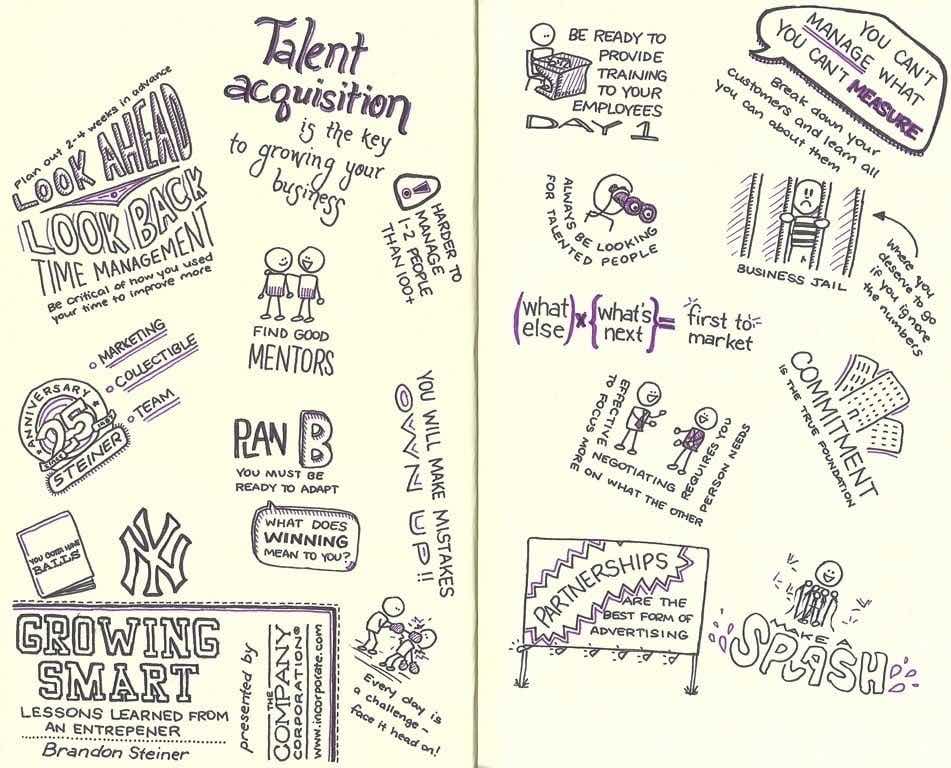 Talent
acquisition
is the key
to growing your
business
Plan out 2-4 weeks in advance
LOOK AHEAD
LOOK BACK
TIME MANAGEMENT
Be critical of how you used
your time to improve more
HARDER TO
MANAGE
1-2 PEOPLE
THAN 100+
FIND GOOD
MENTORS
MARKETING
COLLECTIBLE
TEAM
ANNIVERSARY
25
SINCE 1987
STEINER
PLAN B
YOU MUST BE
READY TO ADAPT
YOU WILL MAKE MISTAKES
OWN UP!!
WHAT DOES
WINNING
MEAN TO YOU?
YOU GOTTA HAVE
BALLS
NY
GROWING
SMART
LESSONS LEARNED FROM
AN ENTREPENER
Brandon Steiner
presented by
THE
COMPANY
CORPORATION®
www.incorporate.com
Every day is
a challenge -
face it head on!
BE READY TO
PROVIDE
TRAINING
TO YOUR
EMPLOYEES
DAY 1
YOU CAN'T
MANAGE WHAT
YOU CAN'T MEASURE
Break down your
customers and learn all
you can about them
ALWAYS BE LOOKING
FOR TALENTED PEOPLE
BUSINESS JAIL
Where you
deserve to go
if you ignore
the numbers
(what else) x {what's next} = first to market
EFFECTIVE NEGOTIATING REQUIRES YOU
TO FOCUS MORE ON WHAT THE OTHER PERSON NEEDS
COMMITMENT
IS THE TRUE FOUNDATION
PARTNERSHIPS
ARE THE
BEST FORM OF
ADVERTISING
MAKE A
SPLASH